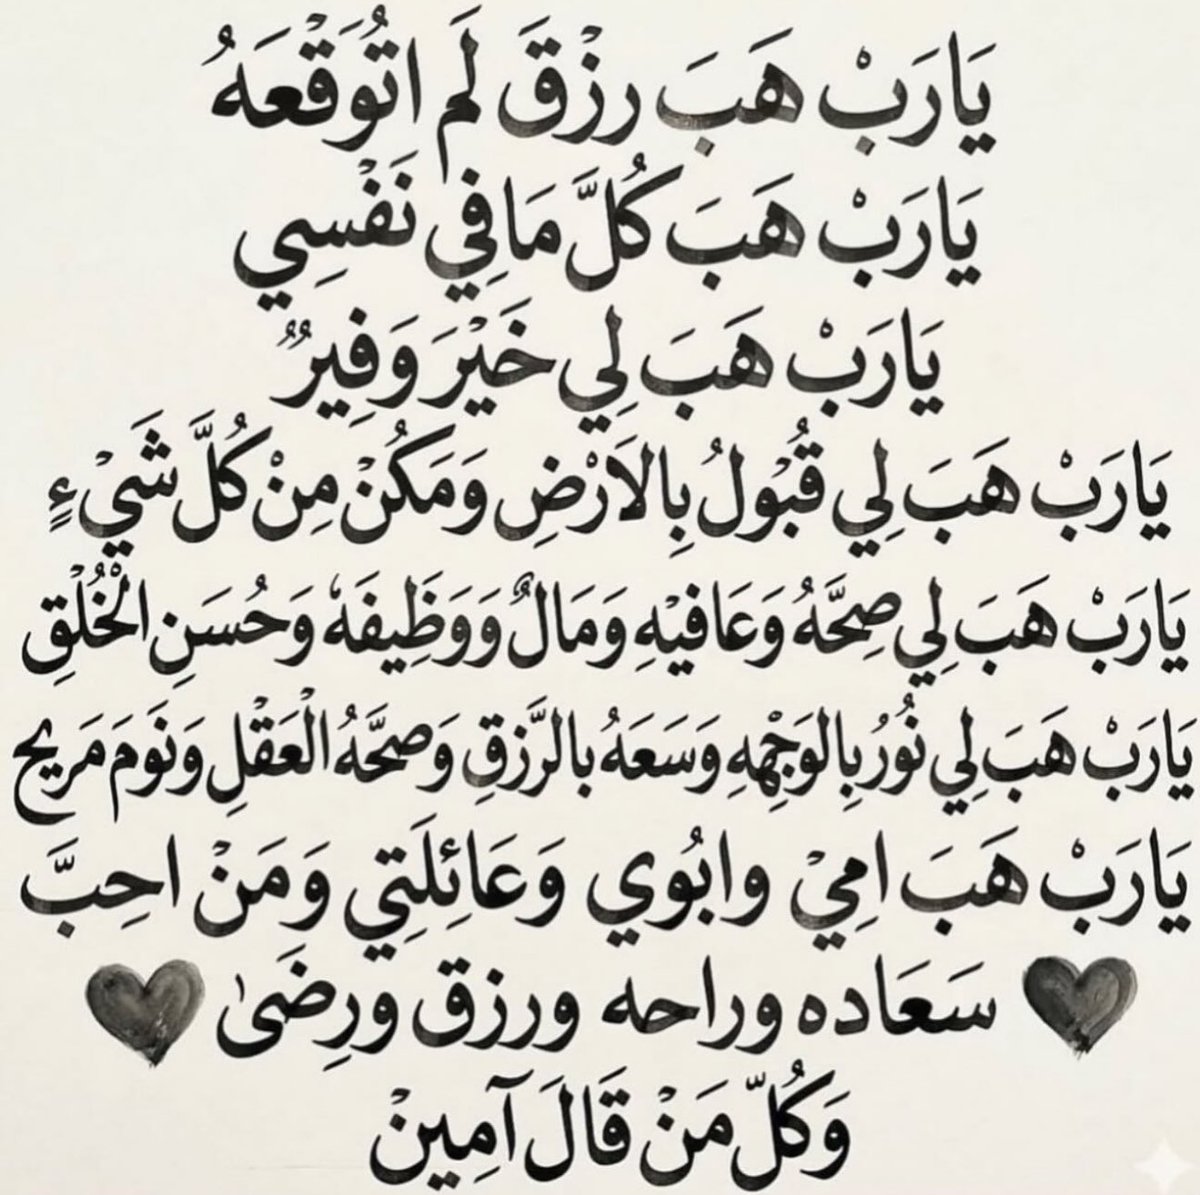 يَارَبْ هَبَ رزْقَ لَم اتُوَقْعَهُ
يَارَبْ هَبَ كُلَّ مَافِي نَفْسِي
يَارَبْ هَبَ لِي خَيْرَ وَفِيرٌ
يَارَبْ هَبَ لِي قُبْولُ بِالاَرْضِ وَمَكُنْ مِنْ كُلَّ شَيْءٍ
يَارَبْ هَبَ لِي صِحَّهُ وَعَافيْهِ وَمَالٌ وَوَظِيفَهُ وَحُسَنِ الْخُلْقِ
يَارَبْ هَبَ لِي نُورُ بِالوَجْهِهِ وَسَعَهُ بالرَّزقِ وَصحَّهُ الْعَقْلِ وَنَومَ مَريح
يَارَبْ هَبَ امِيْ وابُوي وَعَائِلَتِي وَمَنْ احِبَّ
سَعَاده وراحه ورزق ورِضَىٰ
وَكُلّ مَنْ قَالَ آمِينْ